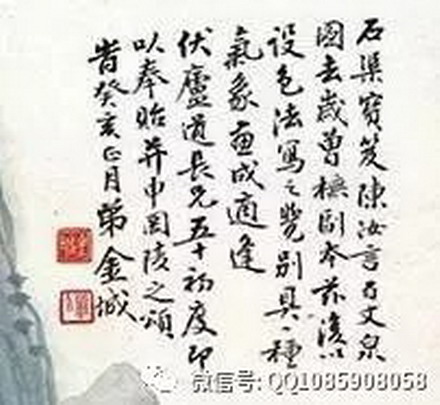 石渠寶笈陳汝言百丈泉
圖去歲曾橅副本茲復以
設色法寫之覺別具一種
氣象画成適逢
伏廬道長兄五十初度即
以奉貽并申岡陵之頌
旹癸亥正月弟金城
微信号: QQ1085908058